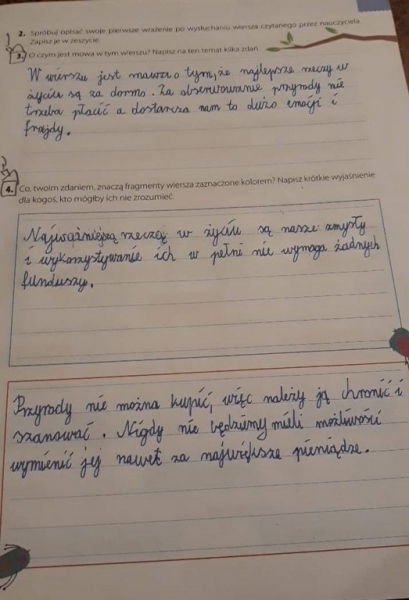 2. Spróbuj opisać swoje pierwsze wrażenie po wysłuchaniu wiersza czytanego przez nauczyciela.
Zapisz je w zeszycie.
3. O czym jest mowa w tym wierszu? Napisz na ten temat kilka zdań.
W wierszu jest mowa o tym, że najlepsze rzeczy w
życiu są za darmo. Za obserwowanie przyrody nie
trzeba płacić a dostarcza nam to dużo emocji i
frajdy.
4. Co, twoim zdaniem, znaczą fragmenty wiersza zaznaczone kolorem? Napisz krótkie wyjaśnienie
dla kogoś, kto mógłby ich nie zrozumieć.
Najważniejszą rzeczą w życiu są nasze zmysły
i wykorzystywanie ich w pełni nie wymaga żadnych
funduszy.
Przyrody nie można kupić, więc należy ją chronić i
szanować. Nigdy nie będziemy mieli możliwości
wymienić jej nawet za największe pieniądze.